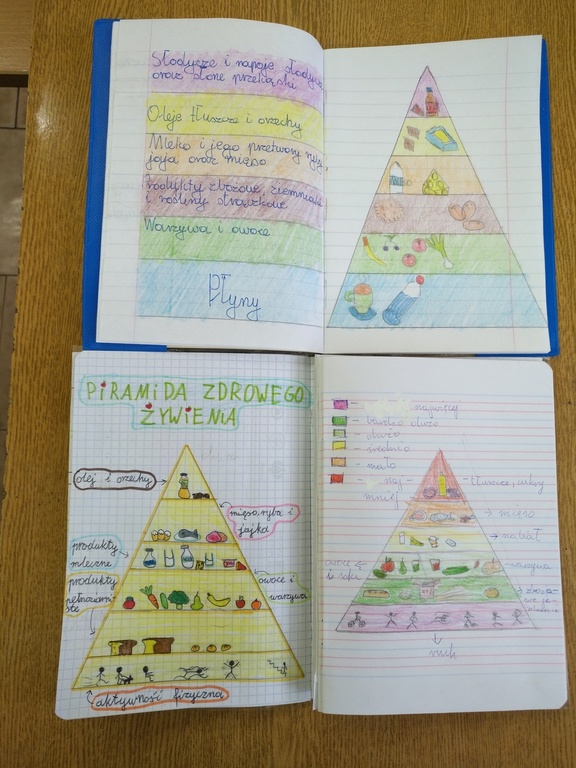 Słodycze i napoje słodzone
oraz słone przekąski
Oleje tłuszcze i orzechy
Mleko i jego przetwory ryby,
jaja oraz mięso
Produkty zbożowe, ziemniaki
i rośliny strączkowe
Warzywa i owoce
Płyny
PIRAMIDA ZDROWEGO
ŻYWIENIA
olej i orzechy
mięso, ryba i
jajka
produkty
mleczne
owoce i
warzywa
produkty
aktywność fizyczna
najwięcej
bardzo dużo
dużo
średnio
mało
naj-
mniej
tłuszcze, cukry
mięso
nabiał
owoce
warzywa
ruch